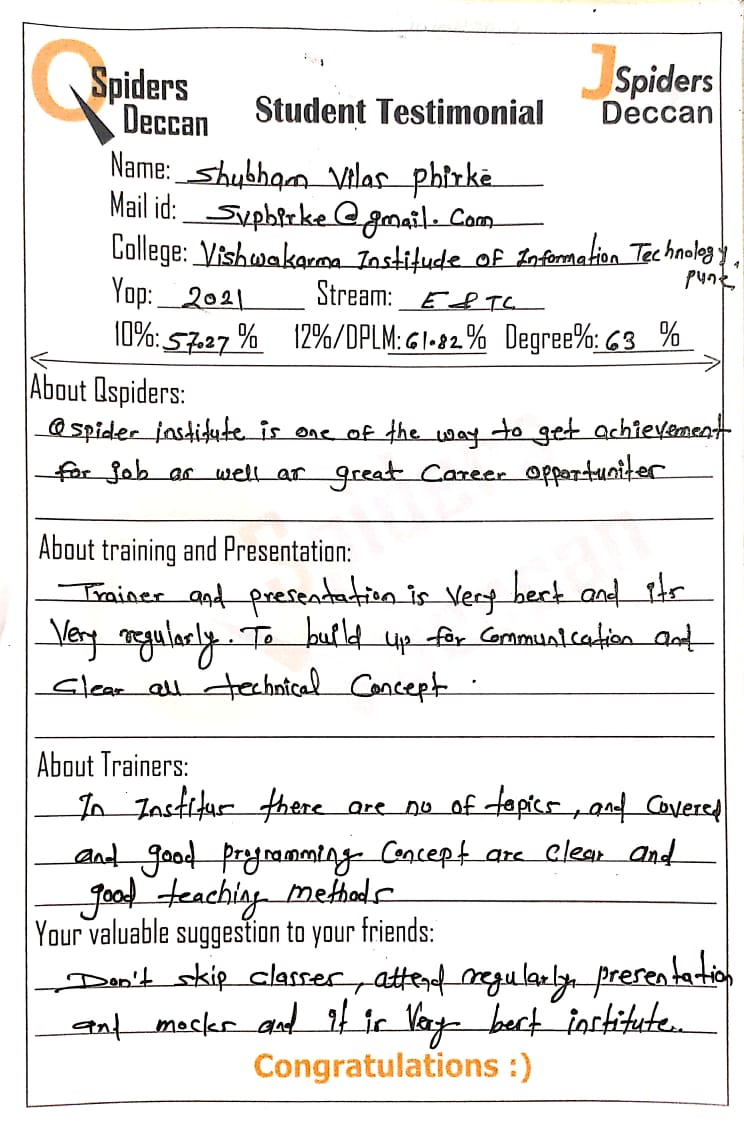 QSpiders
Deccan
Student Testimonial
JSpiders
Deccan
Name: Shubham Vilas Phirke
Mail id: Svphirke@gmail.com
College: Vishwakarma Institude of Information Technology,
Pune
Yop: 2021 Stream: E&TC
10%: 57.27 % 12%/DPLM: 61.82 % Degree%: 63 %
About Qspiders:
Qspider institute is one of the way to get achievement
for job as well as great Career opportunites
About training and Presentation:
Trainer and presentation is Very best and its
Very regularly. To build up for Communication and
Clear all technical Concept.
About Trainers:
In Institus there are no of topics, and Covered
and good programming Concept are Clear and
good teaching methods
Your valuable suggestion to your friends:
Don't skip classes, attend regularly presentation
and mocks and it is Very best institute..
Congratulations :)